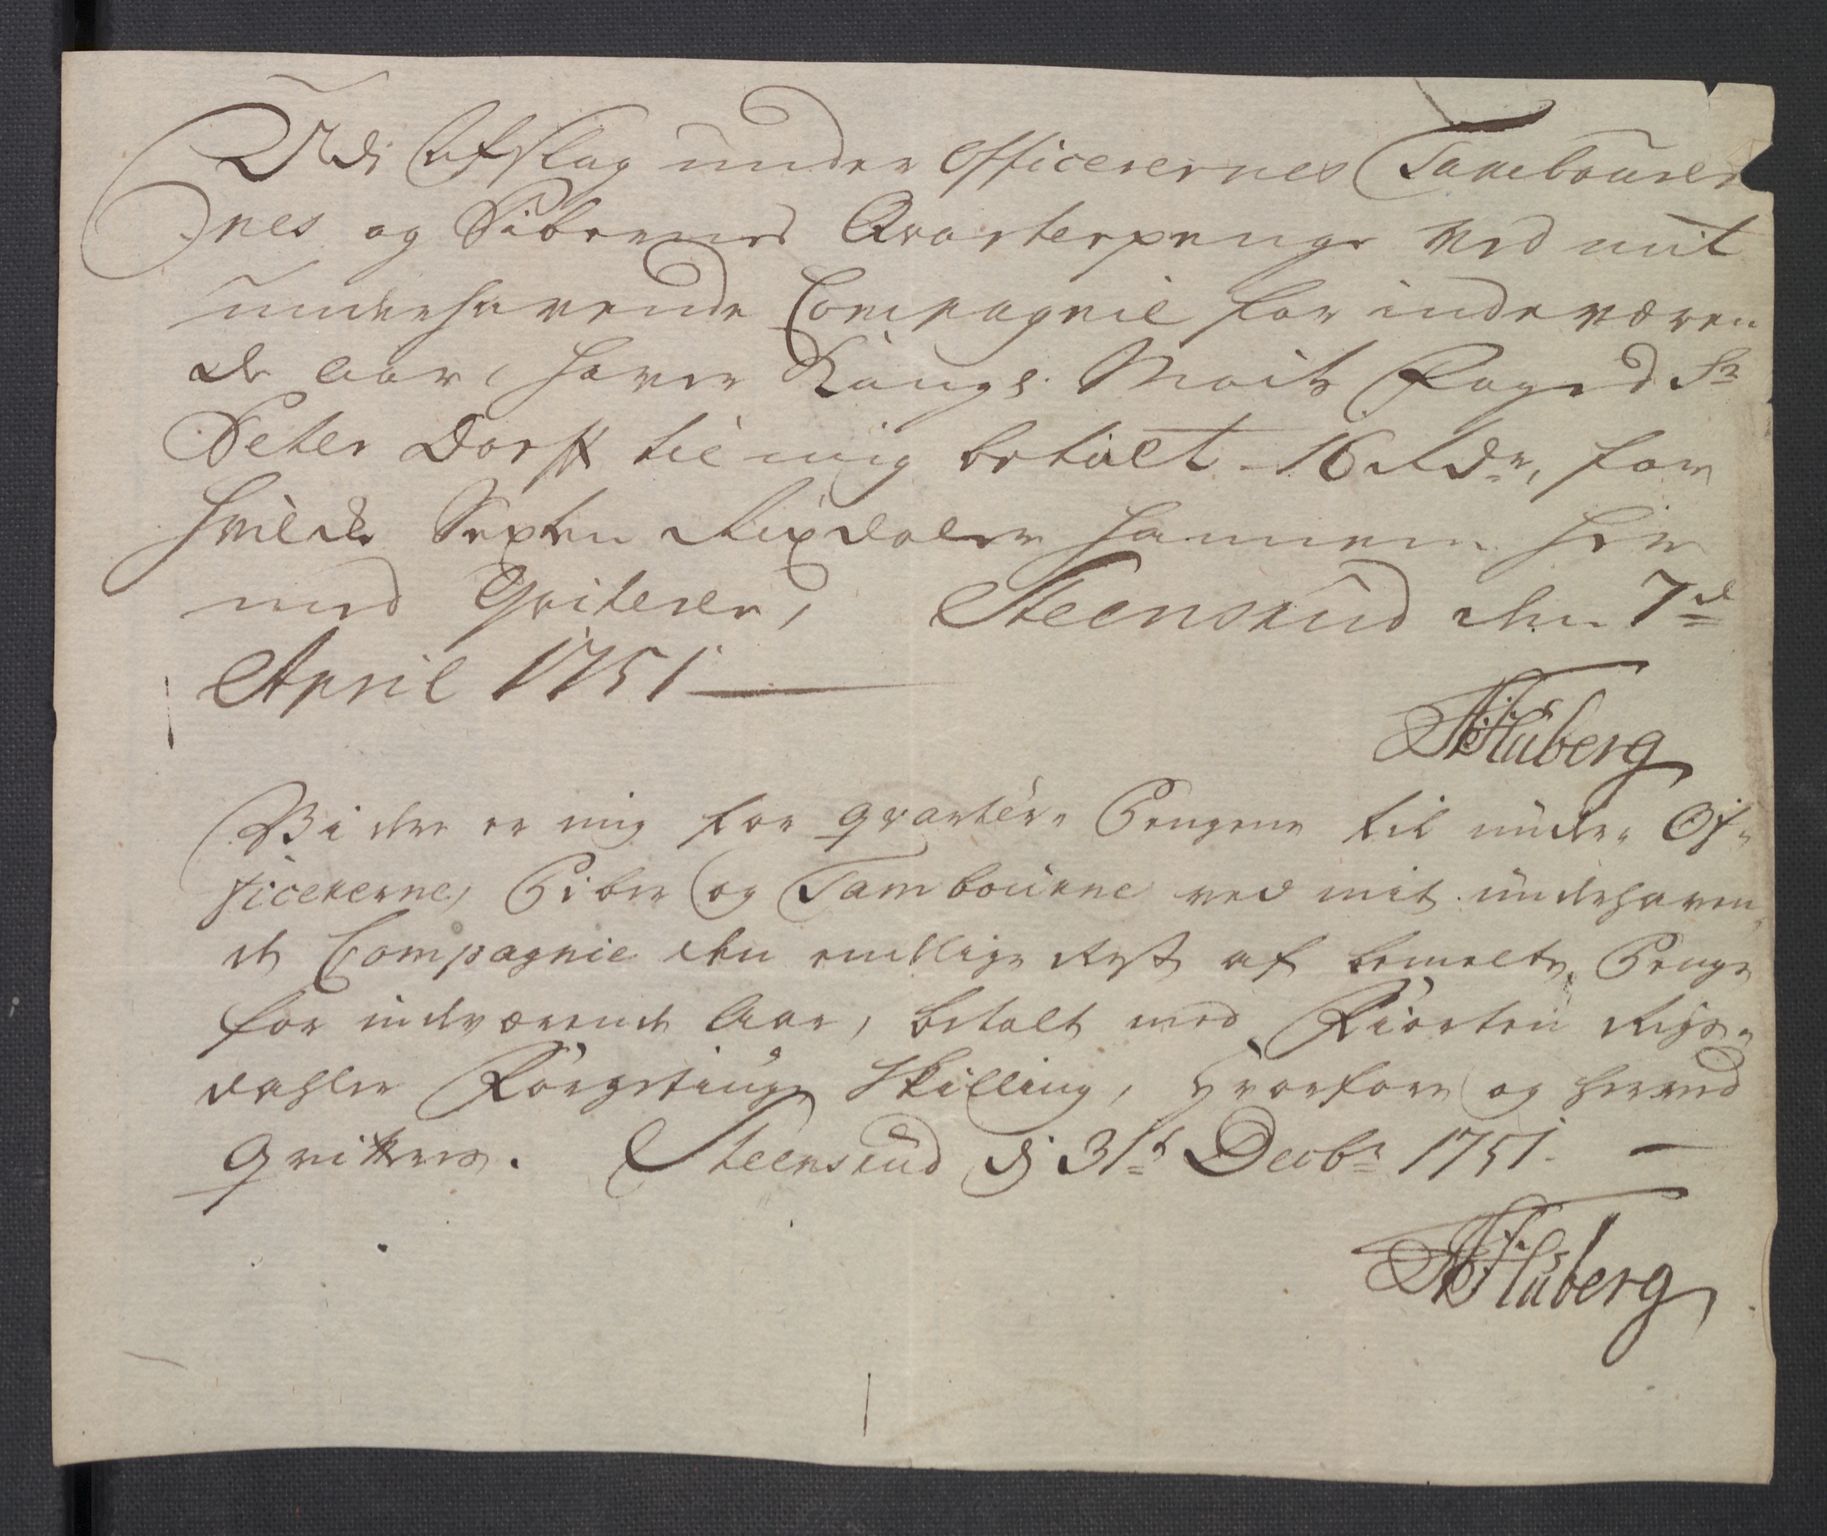 Udi Afslag under Officerernes Tambourer
nes og Pibernes Qvarterpenge ved mit
underhavende Compagnie for indeværen
de Aar, haver Kongl. Maits Foged Sr
Peter Dorff til mig betalt 16 Rdr, for
hvilcke Sexten Rixdaler hannem hier
med Qviteres, Steensrud den 7de
April 1751
Huberg
Videre er mig for qvarteer Pengene til under Of-
ficererne, Piber og Tambourne ved mit underhaven
de Compagnie den endlige Rest af bemelte Penge
for indeværende Aar, betalt med Fiorten Rigs-
dahler Förgetiuge Skilling, hvorfore og herved
qvitteres. Steensrud dj 31t Decbr 1751.
Huberg